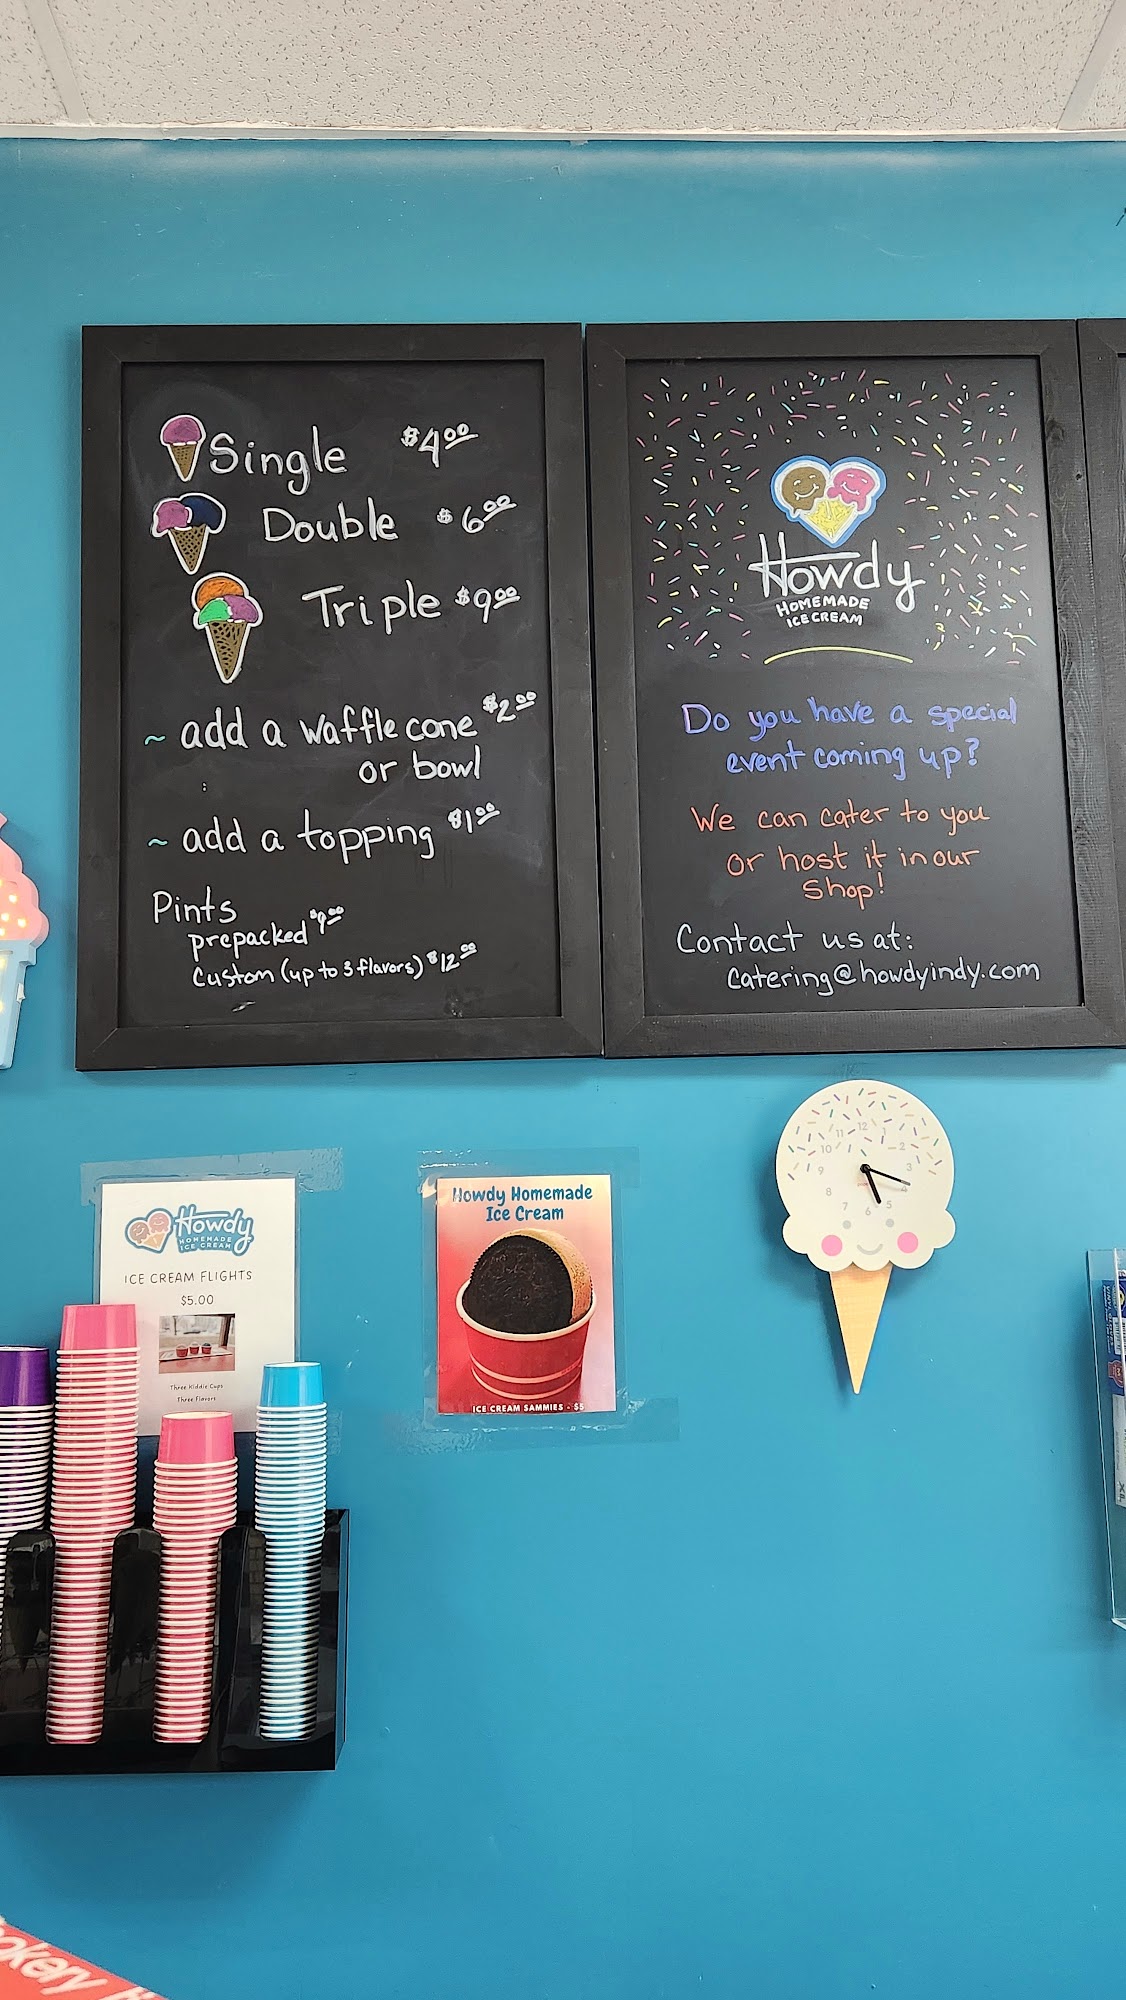 Single $4.00
Double $6.00
Triple $9.00
~ add a waffle cone $2.00
or bowl
~ add a topping $1.00
Pints
prepacked $9.00
Custom (up to 3 flavors) $12.00
Howdy
HOMEMADE
ICE CREAM
Do you have a special
event coming up?
We can cater to you
or host it in our
shop!
Contact us at:
catering@howdyindy.com
Howdy
HOMEMADE
ICE CREAM
ICE CREAM FLIGHTS
$5.00
Three Kiddie Cups
Three Flavors
Howdy Homemade
Ice Cream
ICE CREAM SAMMIES - $5
11 12 1
10 2
9 3
8 4
7 6 5